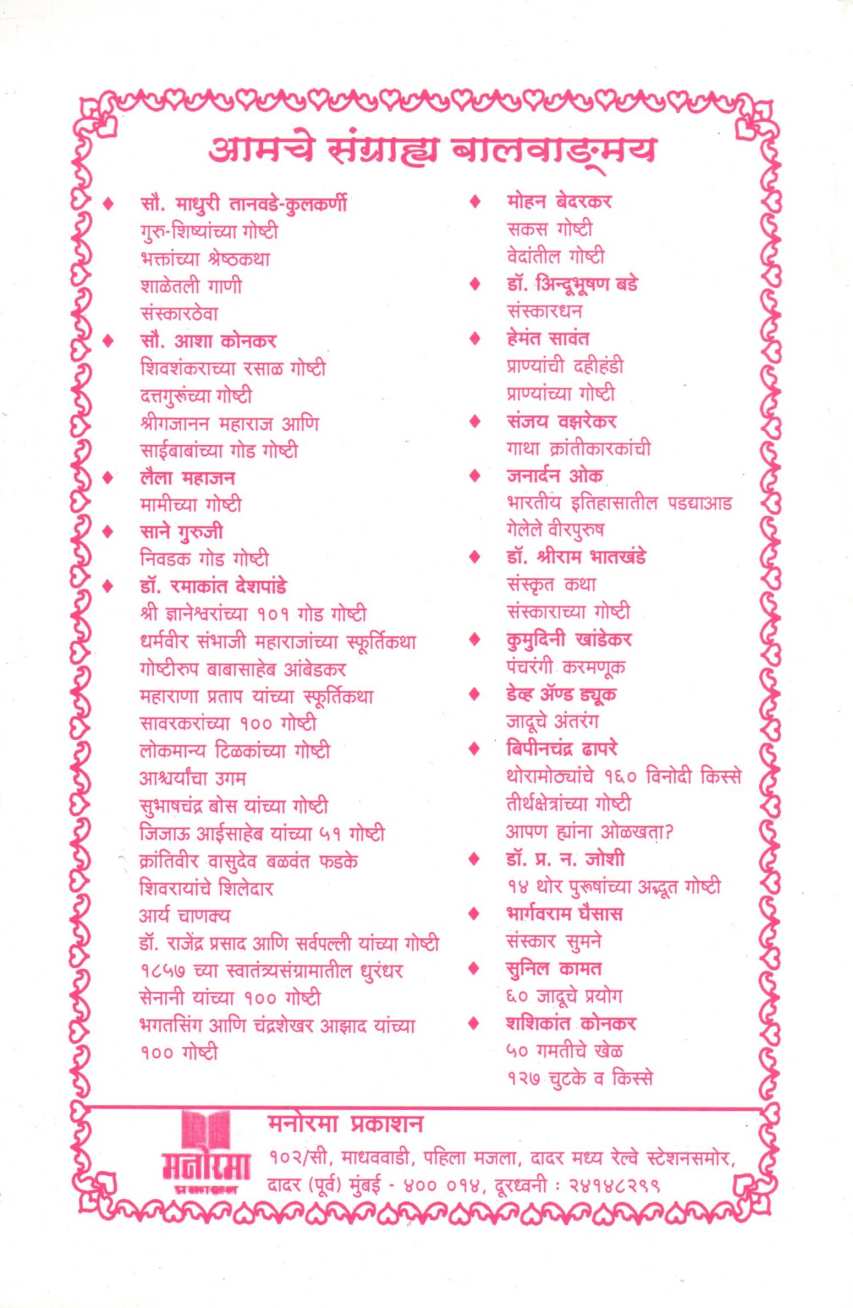 आमचे संग्राह्य बालवाङ्मय
♦ सौ. माधुरी तानवडे-कुलकर्णी
गुरु-शिष्यांच्या गोष्टी
भक्तांच्या श्रेष्ठकथा
शाळेतली गाणी
संस्कारठेवा
♦ सौ. आशा कोनकर
शिवशंकराच्या रसाळ गोष्टी
दत्तगुरूंच्या गोष्टी
श्रीगजानन महाराज आणि
साईबाबांच्या गोड गोष्टी
♦ लैला महाजन
मामीच्या गोष्टी
♦ साने गुरुजी
निवडक गोड गोष्टी
♦ डॉ. रमाकांत देशपांडे
श्री ज्ञानेश्वरांच्या १०१ गोड गोष्टी
धर्मवीर संभाजी महाराजांच्या स्फूर्तिकथा
गोष्टीरुप बाबासाहेब आंबेडकर
महाराणा प्रताप यांच्या स्फूर्तिकथा
सावरकरांच्या १०० गोष्टी
लोकमान्य टिळकांच्या गोष्टी
आश्चर्यांचा उगम
सुभाषचंद्र बोस यांच्या गोष्टी
जिजाऊ आईसाहेब यांच्या ५१ गोष्टी
क्रांतिवीर वासुदेव बळवंत फडके
शिवरायांचे शिलेदार
आर्य चाणक्य
डॉ. राजेंद्र प्रसाद आणि सर्वपल्ली यांच्या गोष्टी
१८५७ च्या स्वातंत्र्यसंग्रामातील धुरंधर
सेनानी यांच्या १०० गोष्टी
भगतसिंग आणि चंद्रशेखर आझाद यांच्या
१०० गोष्टी
♦ मोहन बेदरकर
सकस गोष्टी
वेदांतील गोष्टी
♦ डॉ. अिन्दूभूषण बडे
संस्कारधन
♦ हेमंत सावंत
प्राण्यांची दहीहंडी
प्राण्यांच्या गोष्टी
♦ संजय वझरेकर
गाथा क्रांतीकारकांची
♦ जनार्दन ओक
भारतीय इतिहासातील पडद्याआड
गेलेले वीरपुरुष
♦ डॉ. श्रीराम भातखंडे
संस्कृत कथा
संस्काराच्या गोष्टी
♦ कुमुदिनी खांडेकर
पंचरंगी करमणूक
♦ डेव्ह ॲण्ड ड्यूक
जादूचे अंतरंग
♦ बिपीनचंद्र ढापरे
थोरामोठ्यांचे १६० विनोदी किस्से
तीर्थक्षेत्रांच्या गोष्टी
आपण ह्यांना ओळखता?
♦ डॉ. प्र. न. जोशी
१४ थोर पुरूषांच्या अद्भूत गोष्टी
♦ भार्गवराम घैसास
संस्कार सुमने
♦ सुनिल कामत
६० जादूचे प्रयोग
♦ शशिकांत कोनकर
५० गमतीचे खेळ
१२७ चुटके व किस्से
मनोरमा प्रकाशन
मनोरमा
प्रकाशन
१०२/सी, माधववाडी, पहिला मजला, दादर मध्य रेल्वे स्टेशनसमोर,
दादर (पूर्व) मुंबई - ४०० ०१४, दूरध्वनी : २४१४८२९९